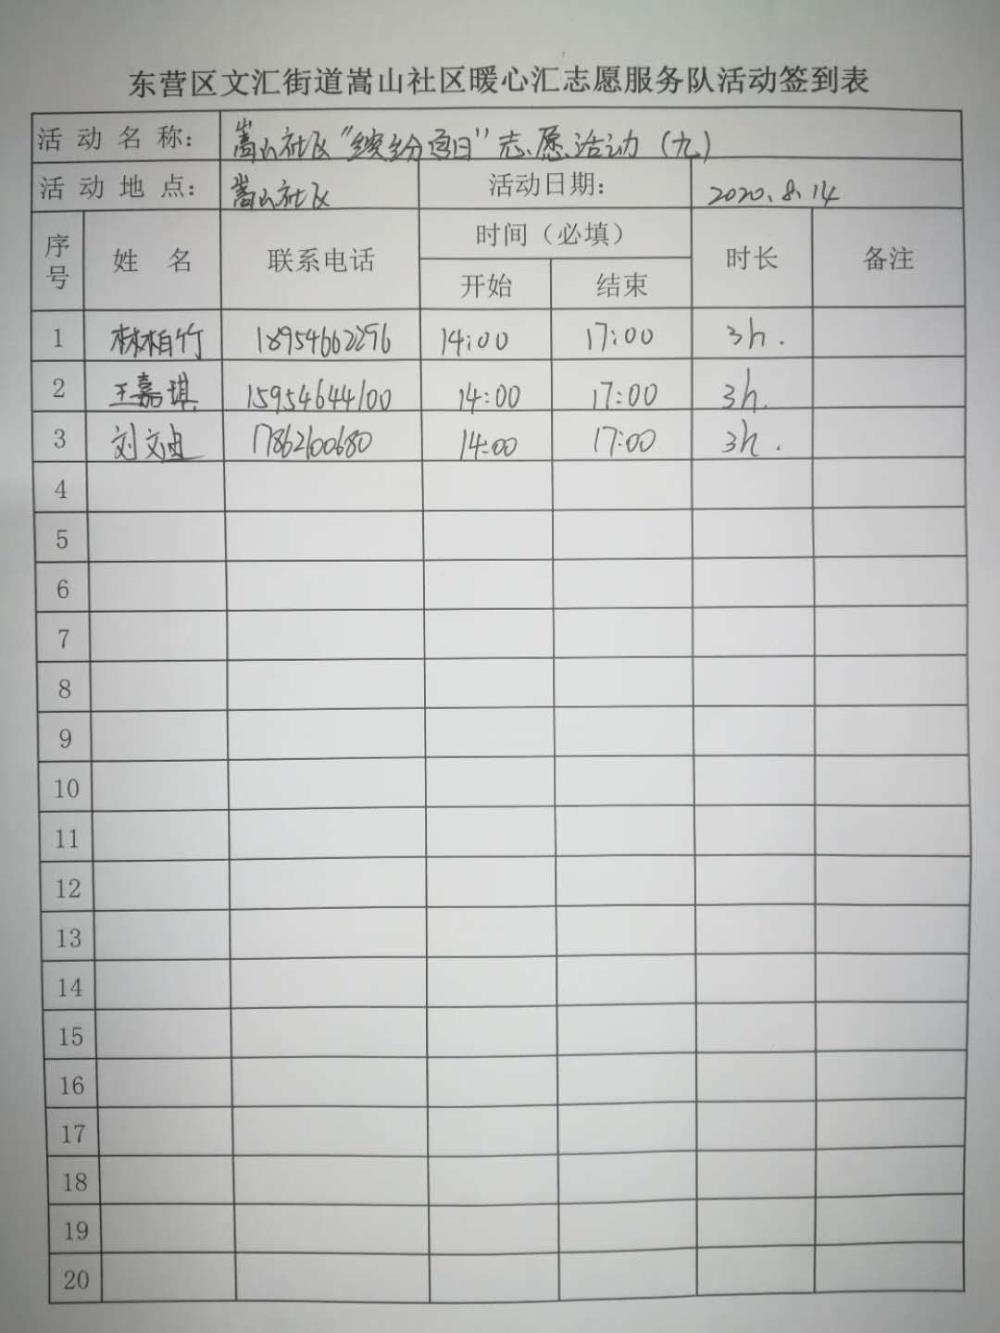 东营区文汇街道嵩山社区暖心汇志愿服务队活动签到表
活动名称： 嵩山社区“缤纷夏日”志愿活动（九）
活动地点： 嵩山社区 活动日期： 2020.8.14
序号 姓名 联系电话 时间（必填） 时长 备注
开始 结束
1 林柏竹 18954662296 14:00 17:00 3h.
2 王嘉琪 15954644100 14:00 17:00 3h.
3 刘文迪 17862100680 14:00 17:00 3h.
4
5
6
7
8
9
10
11
12
13
14
15
16
17
18
19
20